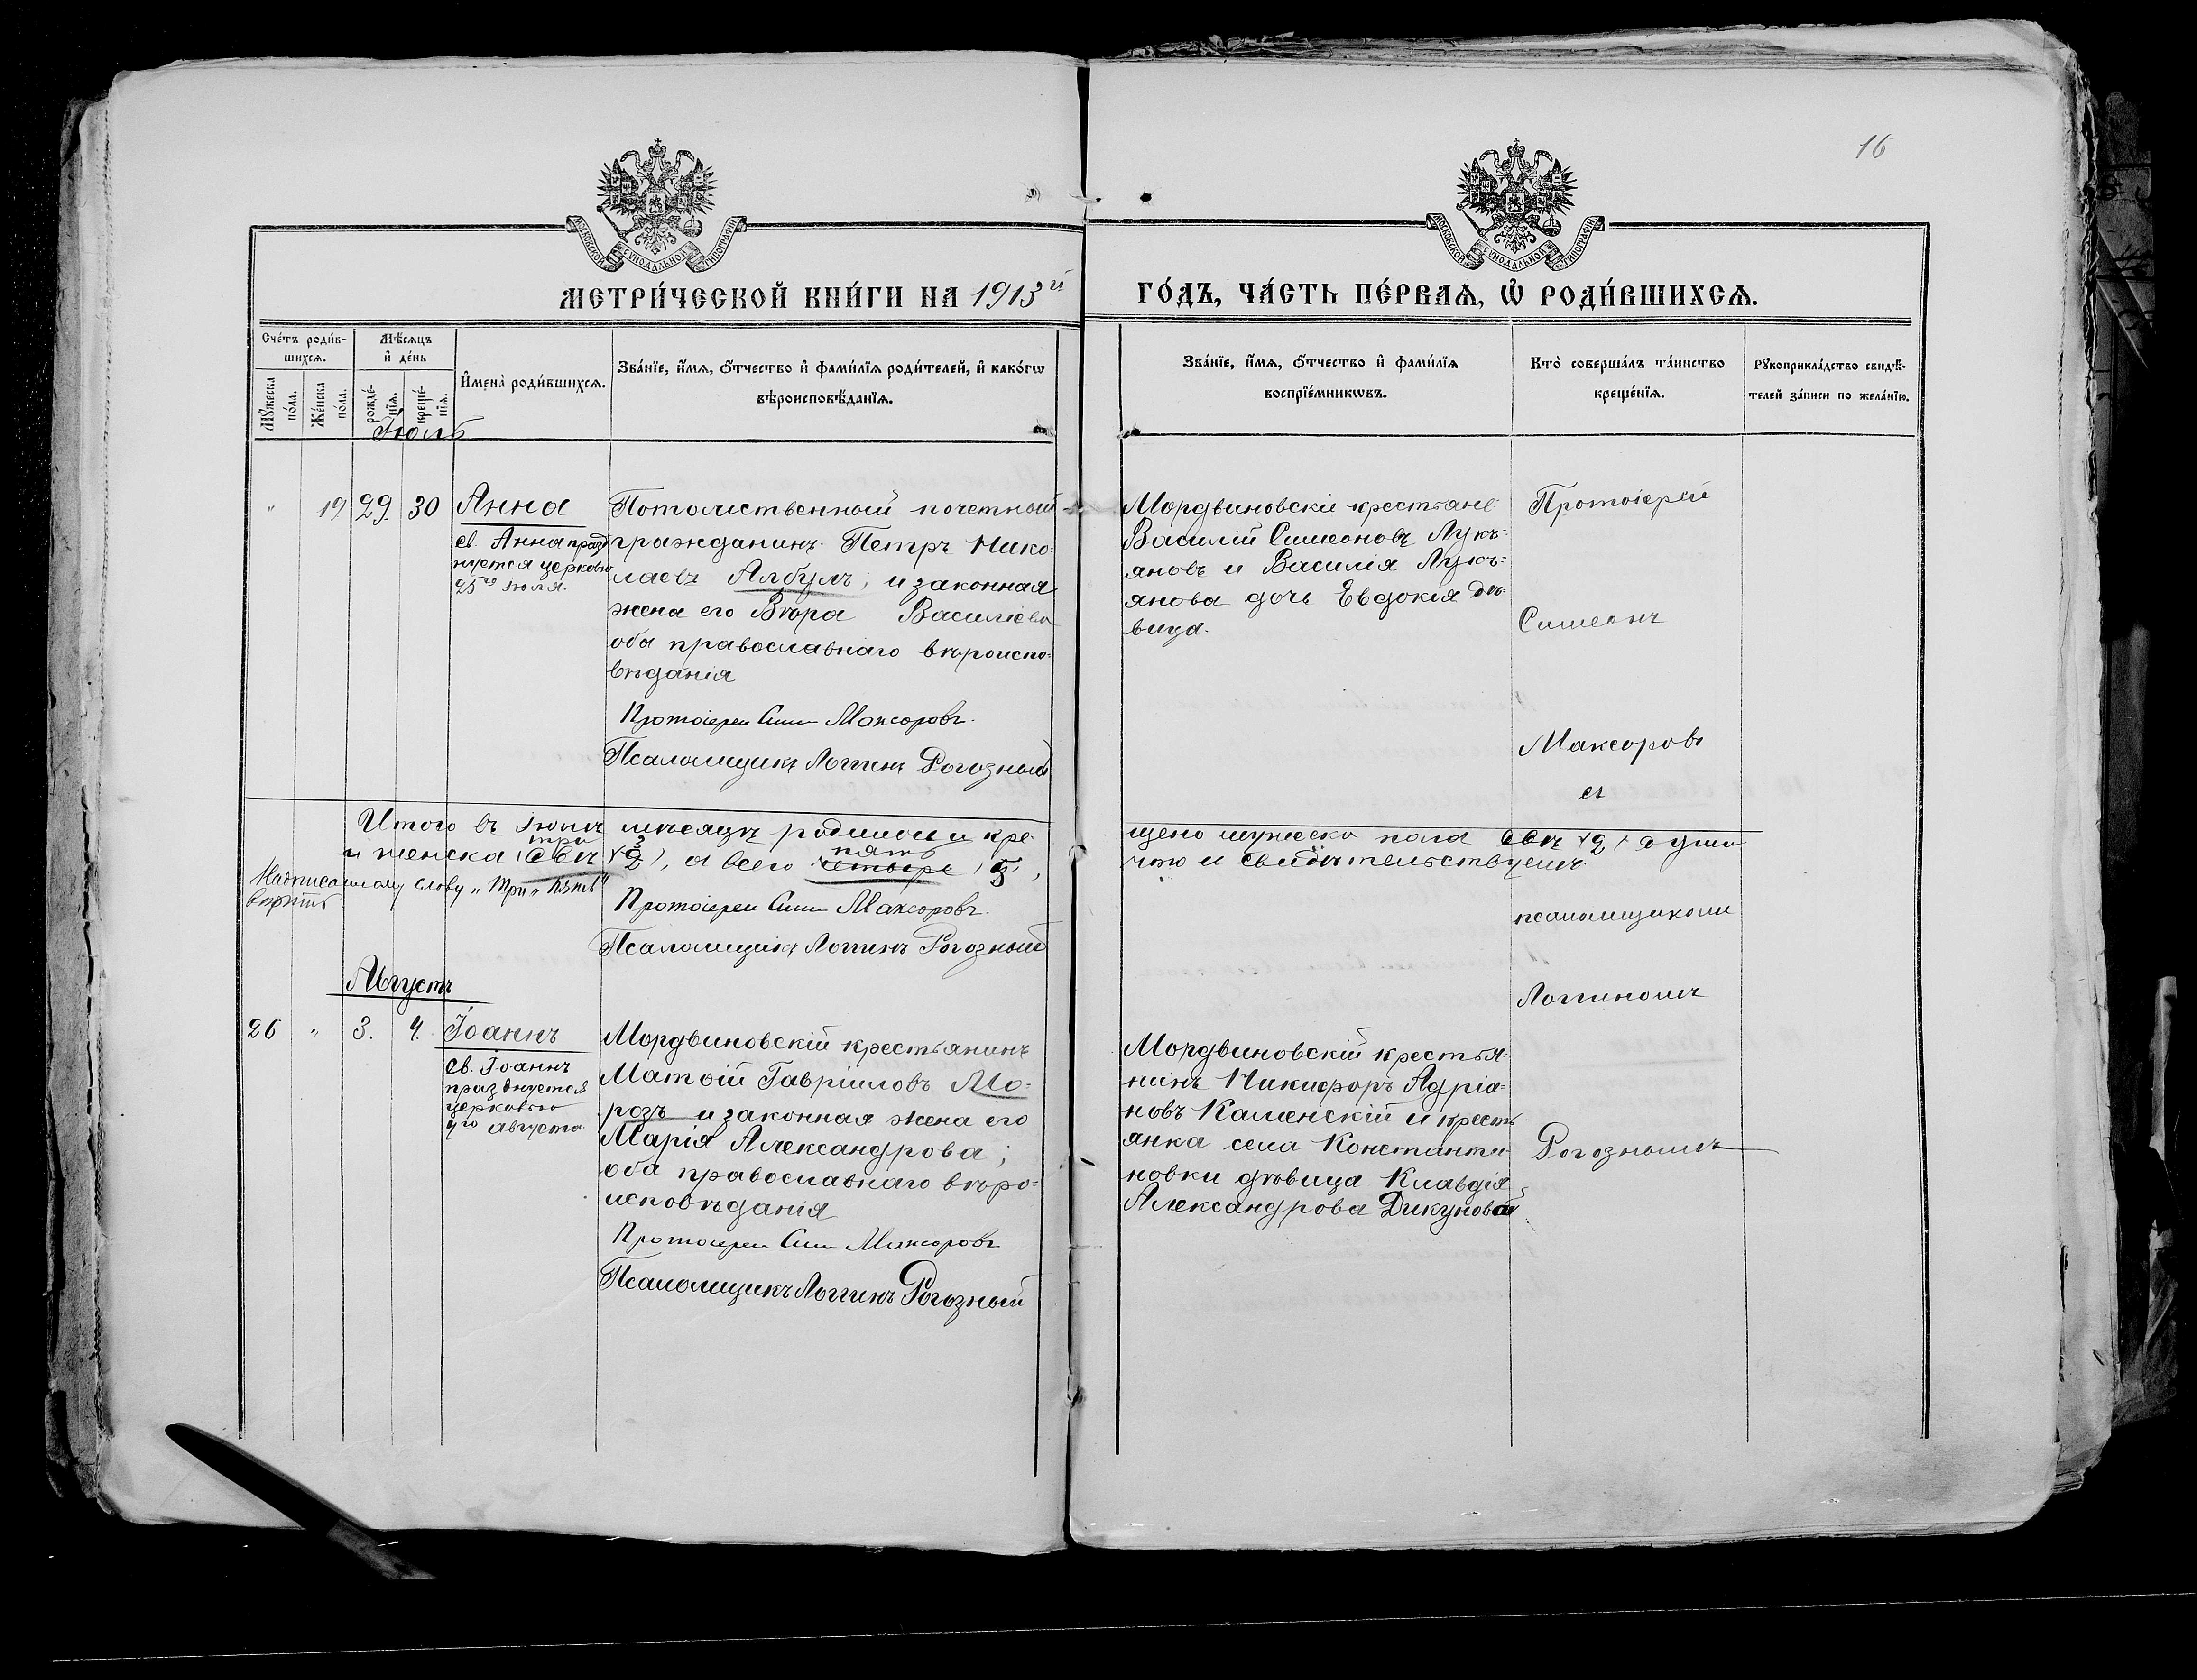 16
МОСКОВСКОЙ СУНОДАЛЬНОЙ ТИПОГРАФІИ
МОСКОВСКОЙ СУНОДАЛЬНОЙ ТИПОГРАФІИ
МЕТРИ́ЧЕСКОЙ КНИ́ГИ НА 1913й
ГО́ДЪ, ЧА́СТЬ ПЕ́РВАѦ, Ѡ҆ РОДИ́ВШИХСѦ.
Сче́тъ роди́в-
шихсѧ.
Мѣ́сѧцъ
и҆ де́нь
И҆мена̀ роди́вшихсѧ.
Зва́нїе, и҆́мѧ, ѻ҆́тчество и҆ фами́лїѧ роди́телей, и҆ како́гѡ
вѣроисповѣ́данїѧ.
Мꙋ́жеска
по́ла.
Же́нска
по́ла.
рожде́-
нїѧ.
креще́-
нїѧ.
Зва́нїе, и҆́мѧ, ѻ҆́тчество и҆ фами́лїѧ
воспрїе́мникѡвъ.
Кто̀ соверша́лъ та́инство
креще́нїѧ.
Рꙋкоприкла́дство свидѣ́-
телей за́писи по жела́нїю.
Іюль
" 19 29. 30 Анна
св. Анна празд
нуется церковью
25го Іюля.
Потомственный почетный
гражданинъ Петръ Нико-
лаевъ Албулъ; и законная
жена его Вѣра Василіева
оба православнаго вѣроиспо-
вѣданія
Протоіерей Сим Максоровъ.
Псаломщикъ Логгинъ Рогозный
Мордвиновскіе крестьяне
Василій Симеоновъ Лукь-
яновъ и Василія Лукь-
янова дочь Евдокія дѣ-
вица.
Протоіерей
Симеонъ
Максоровъ
съ
Итого въ Іюлѣ мѣсяцѣ родилось и кре-
щено мужеска пола двѣ (2) души
три 3 пять
и женска (двѣ (2), а всего четыре (5),
что и свидѣтельствуемъ.
Надписанному слову „три„ пять"
вѣрить
Протоіерей Сим Максоровъ.
Псаломщикъ Логгинъ Рогозный
псаломщикомъ
Логгиномъ
Рогознымъ
Августъ
26 " 3. 4. Іоаннъ
св. Іоаннъ
празднуется
церковью
4го августа
Мордвиновскій крестьянинъ
Матѳій Гавріиловъ Мо-
розъ и законная жена его
Марія Александрова;
оба православнаго вѣро-
исповѣданія
Протоіерей Сим Максоровъ
Псаломщикъ Логгинъ Рогозный
Мордвиновскій крестья-
нинъ Никифоръ Адріа-
новъ Каменскій и кресть-
янка села Константи-
новки дѣвица Клавдія
Александрова Дикунова